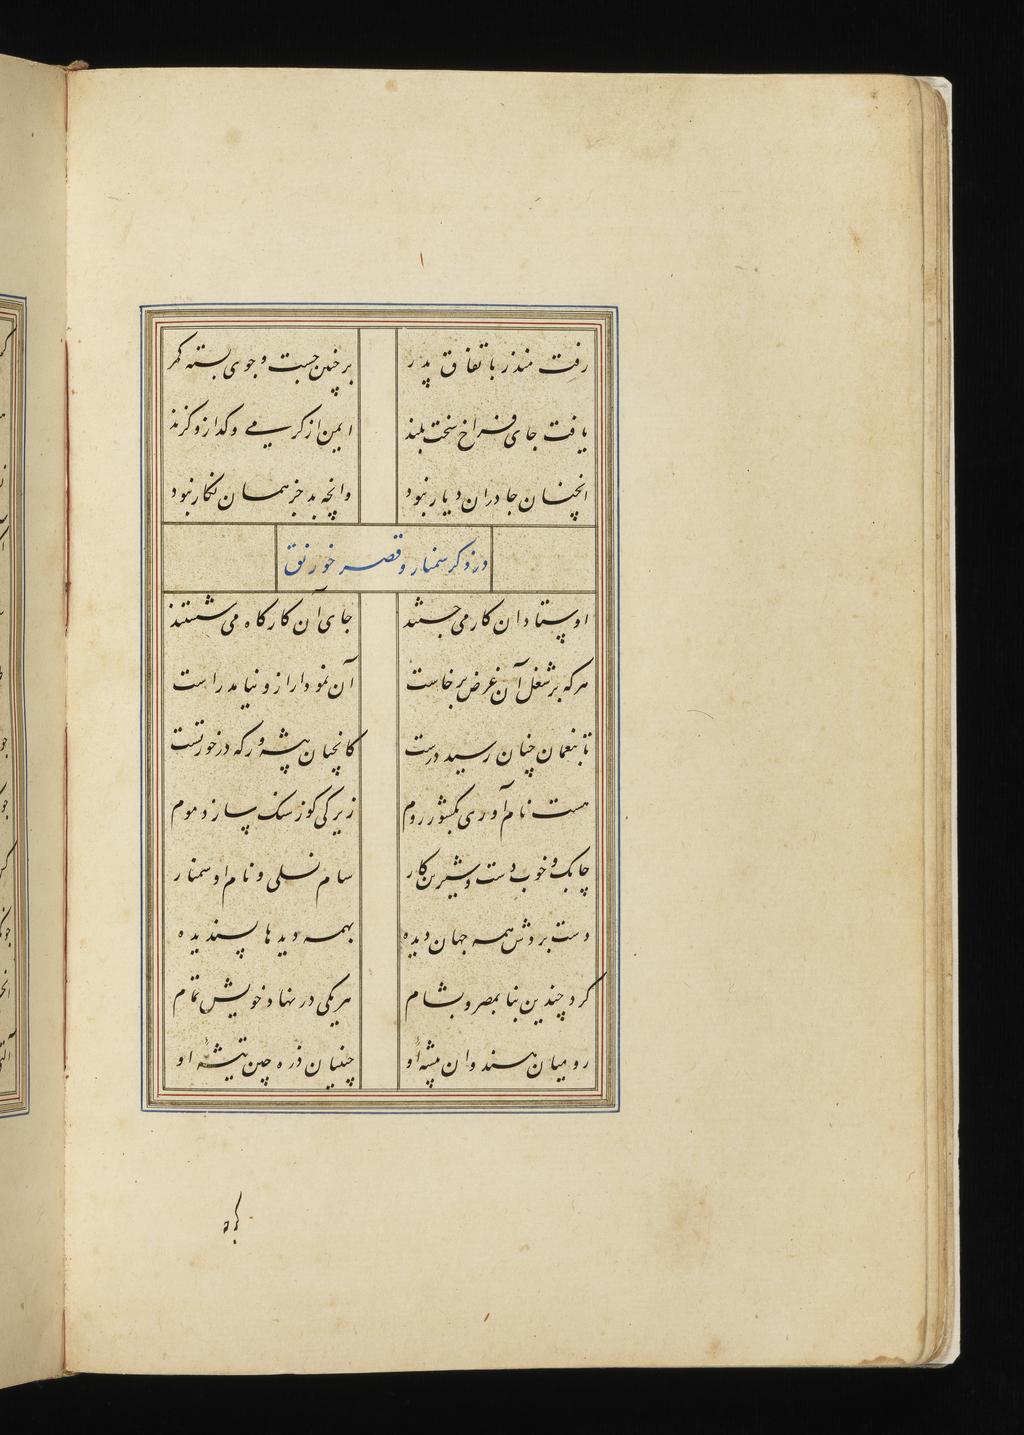 رفت منذر باتفاق پدر بر چنین جست وجوی بسته کمر
یافت جای فراخ سخت بلند ایمن از کرمی و کداز و کزند
انچنان جا دران دیار نبود وانچه بد جز همان نکار نبود
در ذکر سمنار و قصر خورنق
اوستادان کار می جستند جای آن کارکاه می شستند
هرکه بر شغل آن غرض برخاست آن نمودار ازو نیامد راست
تا بنعمان چنان رسید درست کانچنان پیشه ورکه درخورتست
هست نام آوری بکشور روم زیرکی کو ز سنک سازد موم
چابک و خوب دست و شیرین کار سام نسلی و نام او سمنار
دست بردش همه جهان دیده بهمه دیدها پسندیده
کرد چندین بنا بمصر و بشام هر یکی در نهاد خویش تمام
رومیان هندوان پیشه او چینیان ذره چین تیشه او